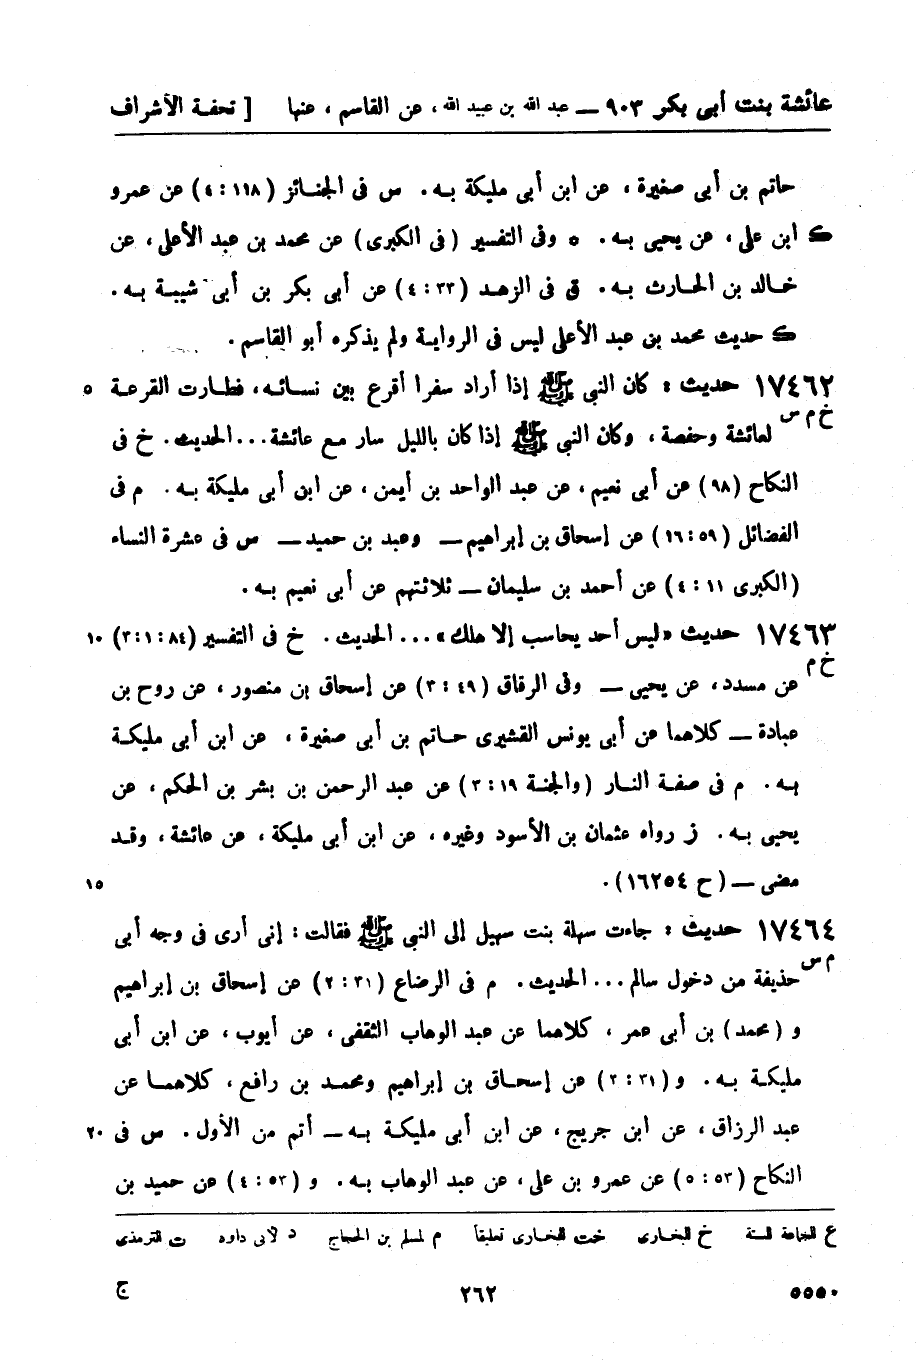 عائشة بنت أبى بكر ٩٠٣ — عبد الله بن عبيد الله ، عن القاسم ، عنها [ تحفة الأشراف
حاتم بن أبى صغيرة ، عن ابن أبى مليكة بـه . س فى الجنـائز ( ١١٨ : ٤ ) عن عمرو
ك ابن على ، عن يحيى بـه . ٥ وفى التفسير ( فى الكبرى ) عن محمد بن عبد الأعلى ، عن
خـالد بن الحـارث بـه . ق فى الزهـد ( ٣٣ : ٤ ) عن أبى بكر بن أبى شيبـة بـه .
ك حديث محمد بن عبد الأعلى ليس فى الروايـة ولم يذكره أبو القاسم .
١٧٤٦٢ حديث : كان النبى ﷺ إذا أراد سفرا أقرع بين نسائـه ، فطـارت القرعـة ٥
خ م س لعائشة وحفصة ، وكان النبى ﷺ إذا كان بالليل سار مـع عائشة . . . الحديث . خ فى
النكاح ( ٩٨ ) عن أبى نعيم ، عن عبد الواحد بن أيمن ، عن ابن أبى مليكة بـه . م فى
الفضائل ( ٥٩ : ١٦ ) عن إسحاق بن إبراهيم — وعبد بن حميد — س فى عشرة النساء
( الكبرى ١١ : ٤ ) عن أحمد بن سليمان — ثلاثتهم عن أبى نعيم بـه .
١٧٤٦٣ حديث « ليس أحد يحاسب إلا هلك » . . . الحديث . خ فى التفسير ( ٨٤ : ١ : ٣ ) ١٠
خ م عن مسدد ، عن يحيى — وفى الرقاق ( ٤٩ : ٣ ) عن إسحاق بن منصور ، عن روح بن
عبادة — كلاهما عن أبى يونس القشيرى حـاتم بن أبى صغيرة ، عن ابن أبى مليكـة
بـه . م فى صفـة النـار ( والجنة ١٩ : ٣ ) عن عبد الرحمن بن بشر بن الحكم ، عن
يحيى بـه . ز رواه عثمان بن الأسود وغيره ، عن ابن أبى مليكة ، عن عائشة ، وقـد
مضى — ( ح ١٦٢٥٤ ) . ١٥
١٧٤٦٤ حديث : جاءت سهلة بنت سهيل إلى النبى ﷺ فقالت : إنى أرى فى وجه أبى
م س حذيفة من دخول سالم . . . الحديث . م فى الرضاع ( ٣١ : ٢ ) عن إسحاق بن إبراهيم
و ( محمد ) بن أبى عمر ، كلاهما عن عبد الوهاب الثقفى ، عن أيوب ، عن ابن أبى
مليكـة بـه . و ( ٣١ : ٢ ) عن إسحـاق بن إبراهيم ومحمـد بن رافع ، كلاهمـا عن
عبد الرزاق ، عن ابن جريج ، عن ابن أبى مليكـة بـه — أتم من الأول . س فى ٢٠
النكاح ( ٥٣ : ٥ ) عن عمرو بن على ، عن عبد الوهاب بـه . و ( ٥٣ : ٤ ) عن حميد بن
ع للجماعة الستة خ للبخارى خت للبخارى تعليقاً م لمسلم بن الحجاج د لابى داود ت للترمذى
٥٥٥٠ ٢٦٢ ج